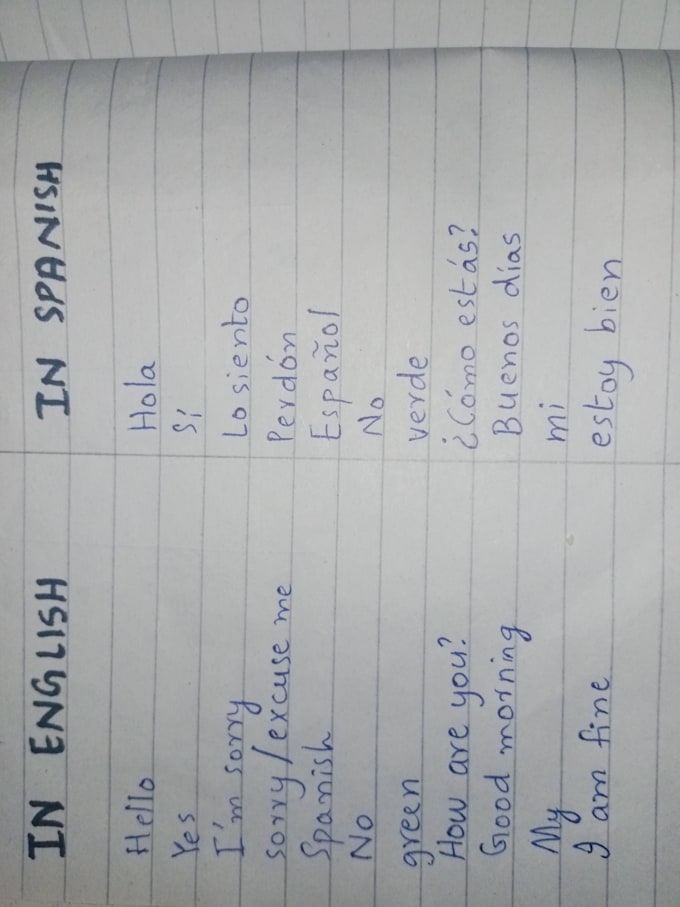 IN ENGLISH IN SPANISH
Hello Hola
Yes Sí
I'm sorry Lo siento
sorry/excuse me Perdón
Spanish Español
No No
green verde
How are you? ¿Cómo estás?
Good morning Buenos días
My mi
I am fine estoy bien